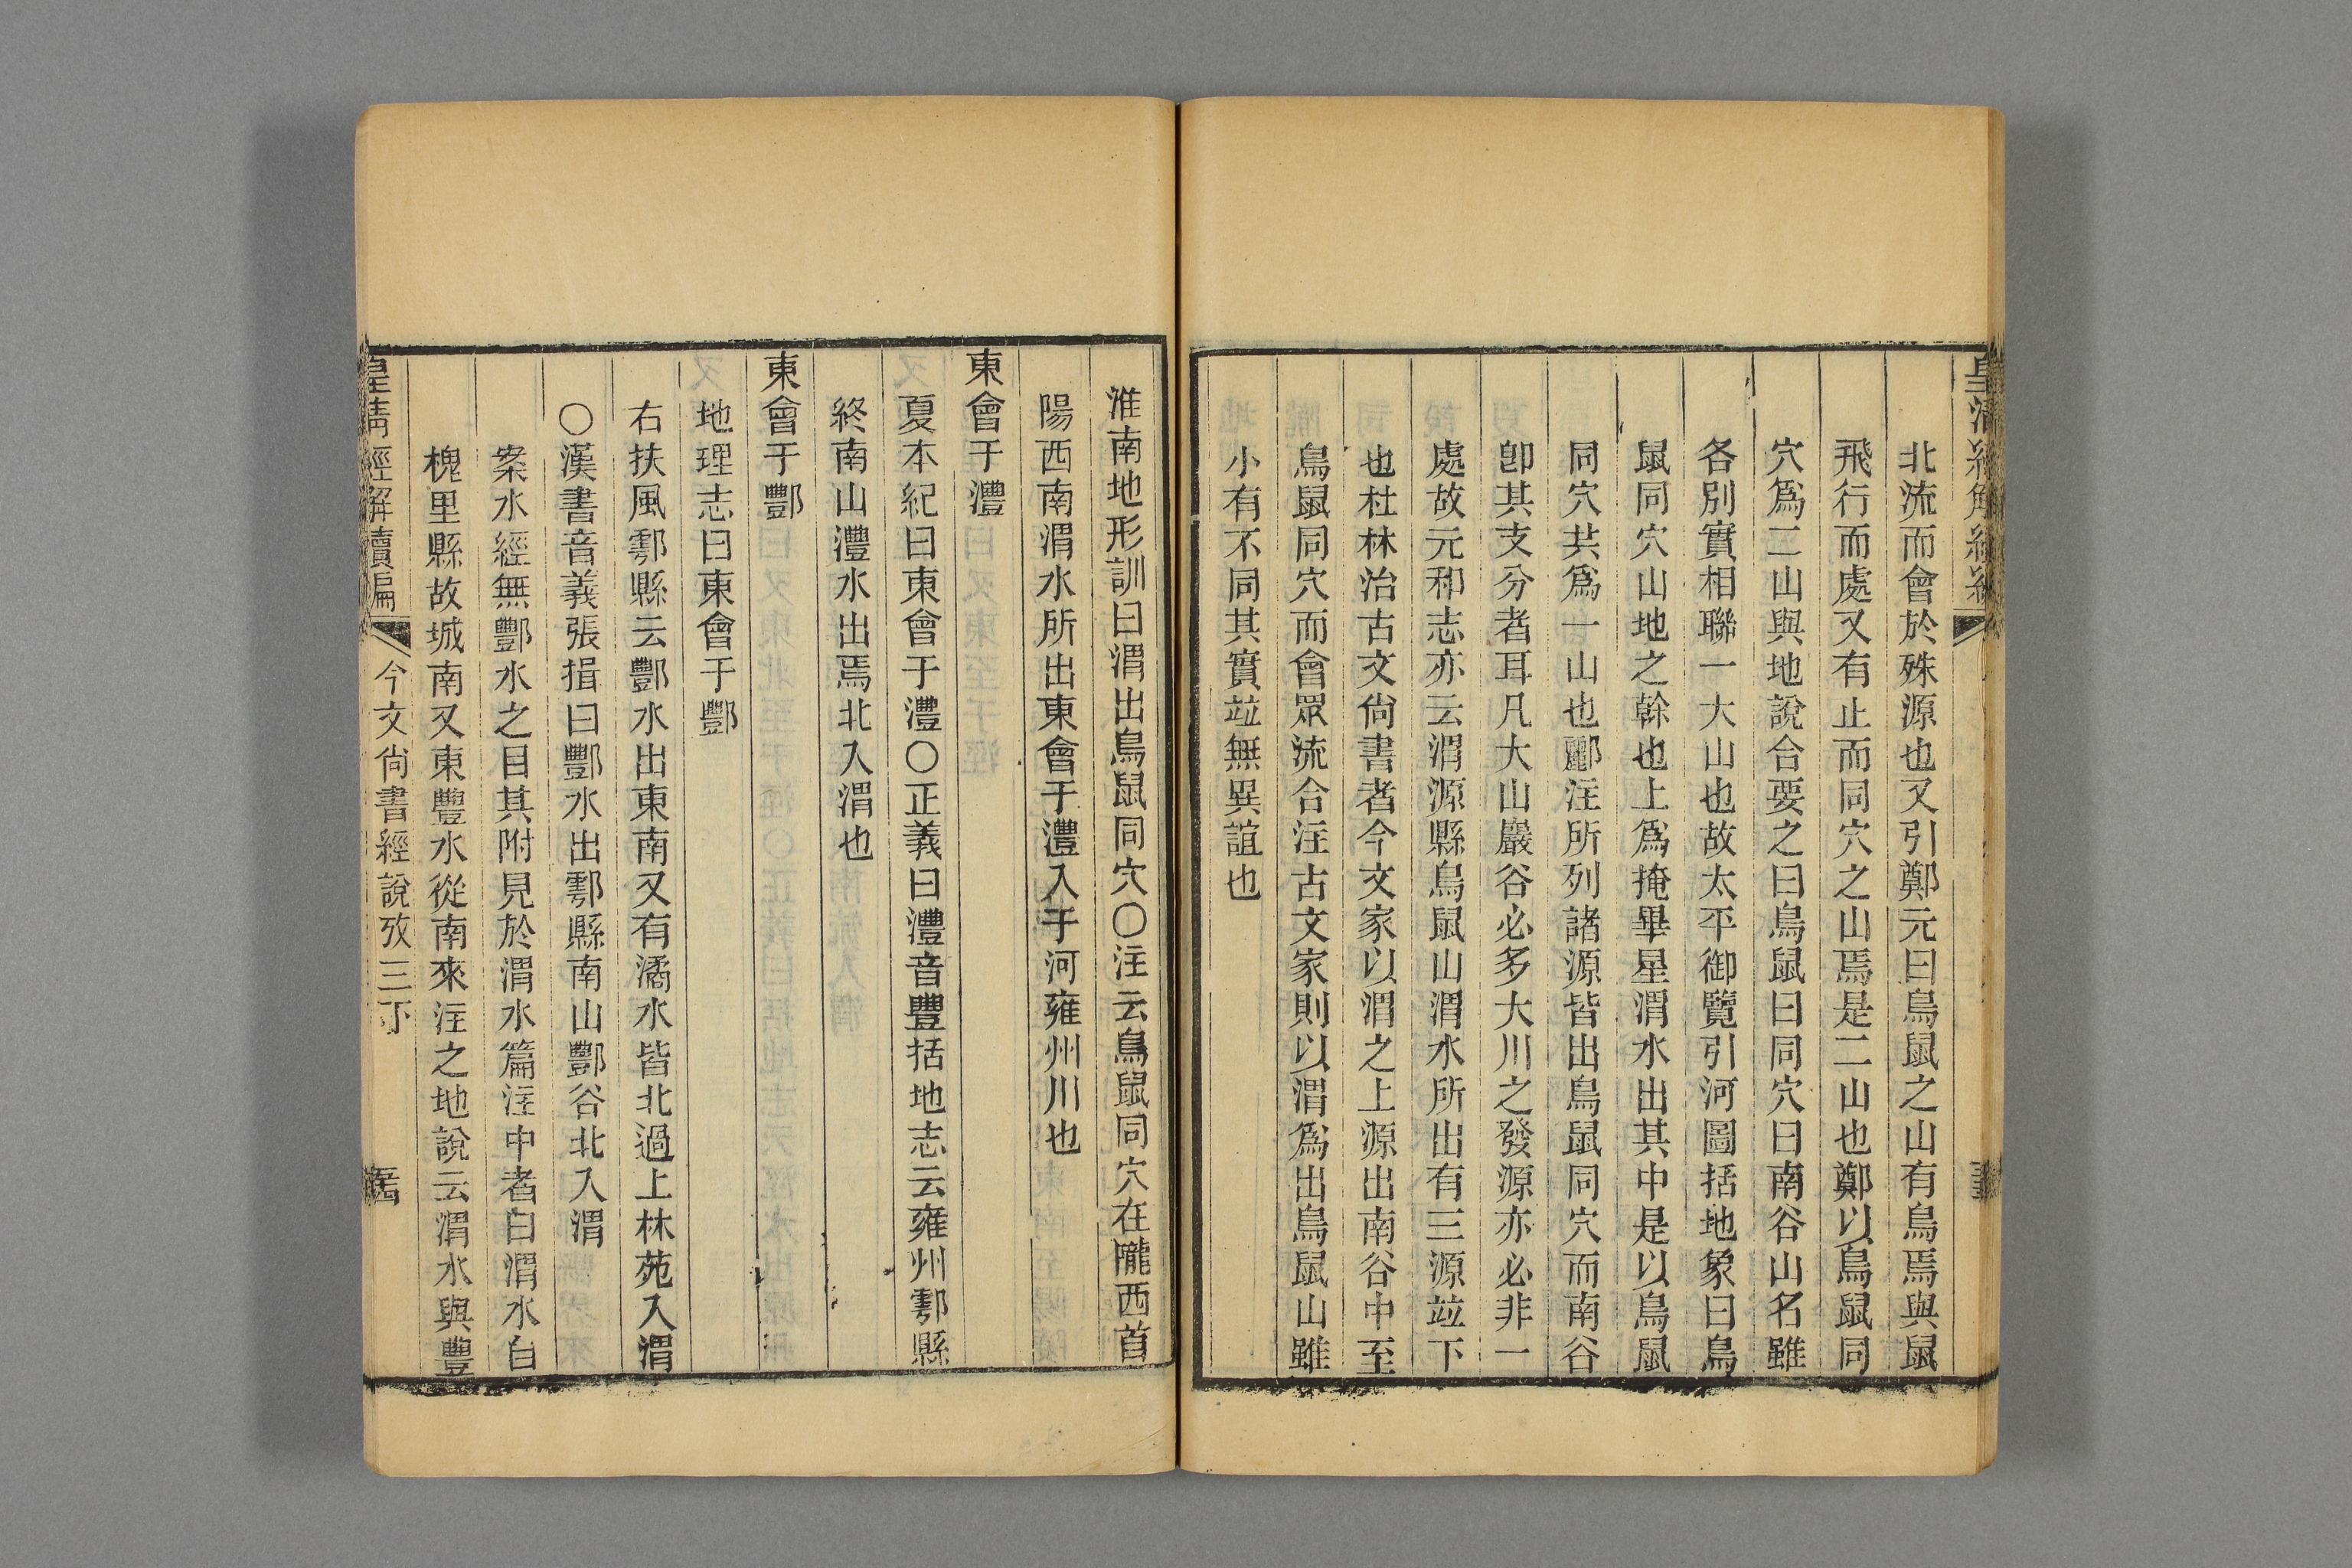 北流而會於殊源也又引鄭元曰鳥鼠之山有鳥焉與鼠
飛行而處又有止而同穴之山焉是二山也鄭以鳥鼠同
穴爲二山與地說合要之曰鳥鼠曰同穴曰南谷山名雖
各別實相聯一大山也故太平御覽引河圖括地象曰鳥
鼠同穴山地之榦也上爲掩畢星渭水出其中是以鳥鼠
同穴共爲一山也酈注所列諸源皆出鳥鼠同穴而南谷
卽其支分者耳凡大山巖谷必多大川之發源亦必非一
處故元和志亦云渭源縣鳥鼠山渭水所出有三源竝下
也杜林治古文尙書者今文家以渭之上源出南谷中至
鳥鼠同穴而會眾流合注古文家則以渭爲出鳥鼠山雖
小有不同其實竝無異誼也
淮南地形訓曰渭出鳥鼠同穴○注云鳥鼠同穴在隴西首
陽西南渭水所出東會于灃入于河雍州川也
東會于灃
夏本紀曰東會于灃○正義曰灃音豐括地志云雍州鄠縣
終南山灃水出焉北入渭也
東會于酆
地理志曰東會于酆
右扶風鄠縣云酆水出東南又有潏水皆北過上林苑入渭
○漢書音義張揖曰酆水出鄠縣南山酆谷北入渭
案水經無酆水之目其附見於渭水篇注中者曰渭水自
槐里縣故城南又東豐水從南來注之地說云渭水與豐
皇清經解續編 今文尙書經說攷三下